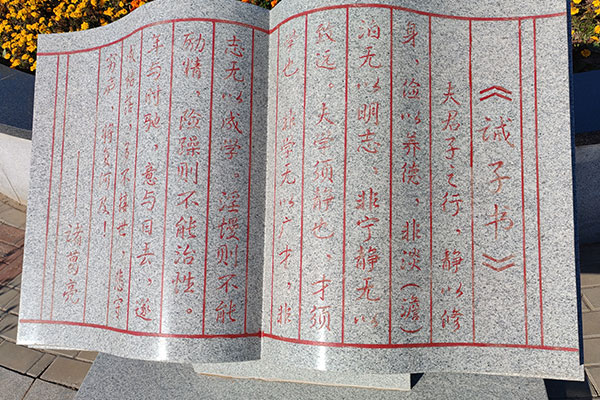 《诫子书》
夫君子之行，静以修
身，俭以养德，非淡(澹)
泊无以明志，非宁静无以
致远。夫学须静也，才须
学也，非学无以广才，非
志无以成学。淫慢则不能
励情，险躁则不能治性。
年与时驰，意与日去，遂
成枯落，多不接世，悲守
穷庐，将复何及！
——諸葛亮